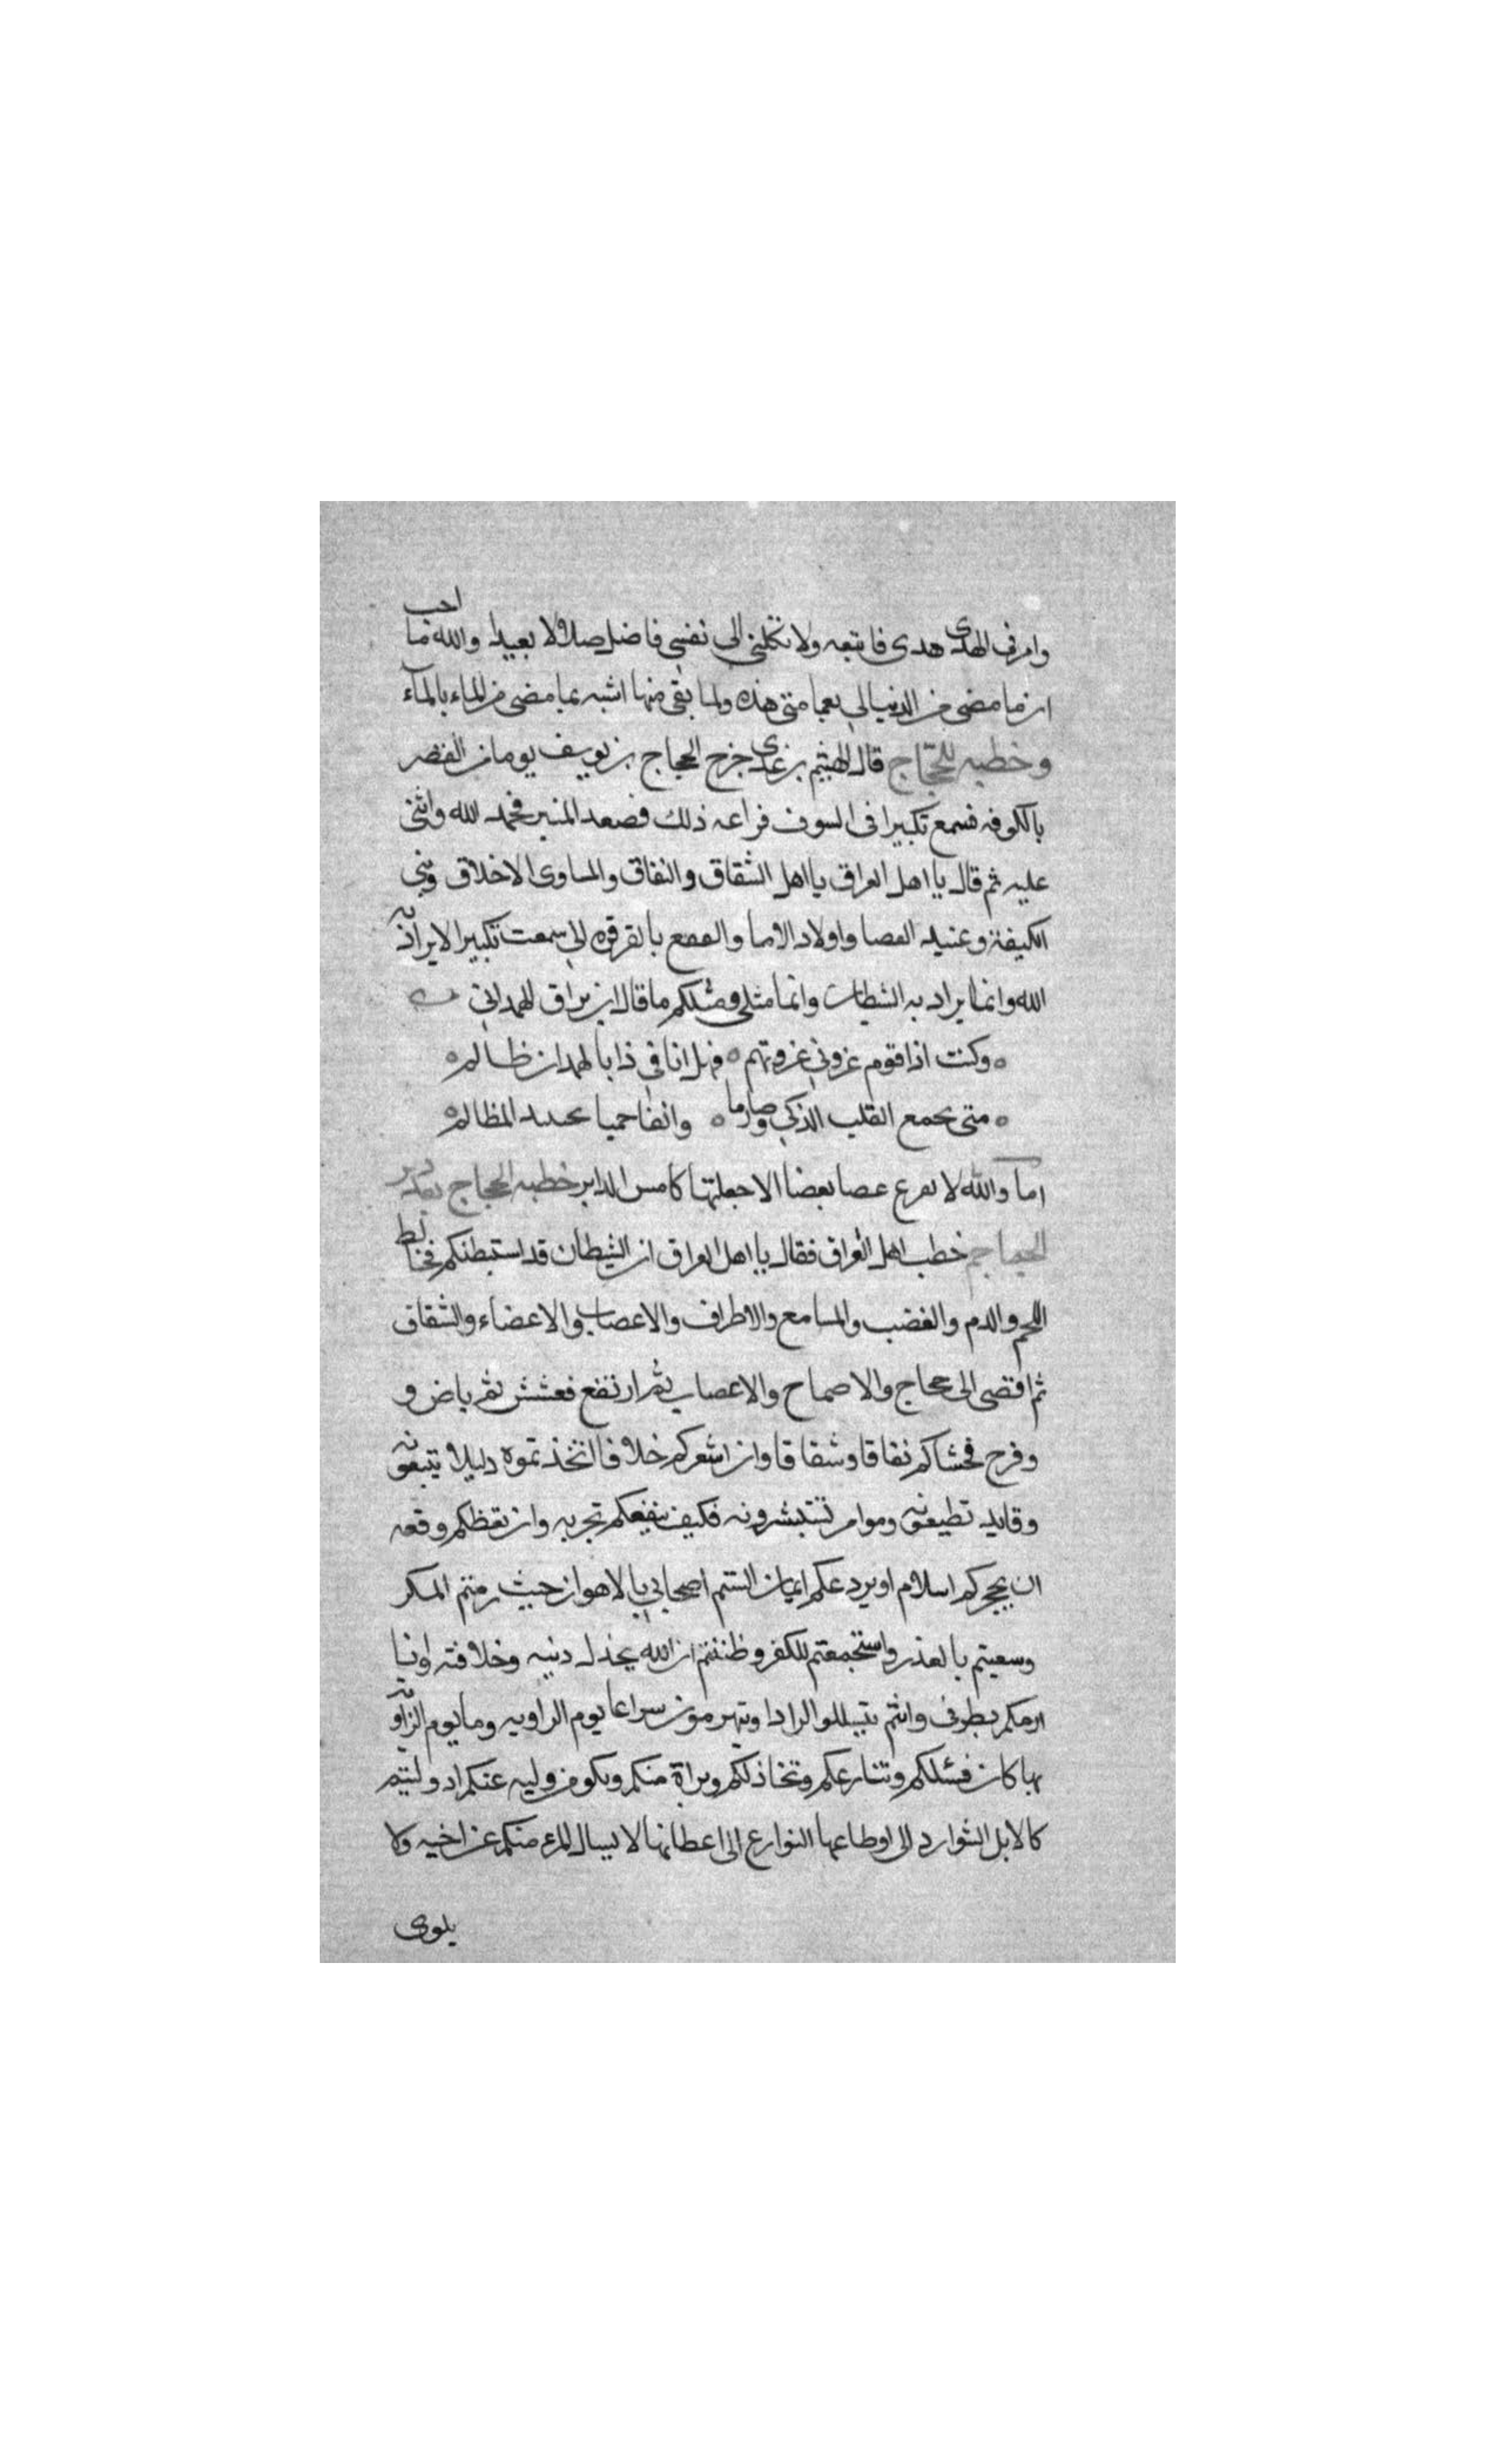 وامرني الهدى هدى فاتبعه ولا تكلني الى نفسي فاضل ضلالا بعيدا والله ما احب
ان ما مضى من الدنيا لي بعمامتي هذه ولما بقي منها اشبه بما مضى من الماء بالماء
وخطبه للحجاج قال الهيثم بن عدى خرج الحجاج بن يوسف يوما من القصر
بالكوفه فسمع تكبيرا في السوق فراعه ذلك فصعد المنبر فحمد الله واثنى
عليه ثم قال يا اهل العراق يا اهل الشقاق والنفاق والمساوى الاخلاق وبني
الكيفة وعبيد العصا واولاد الاما والفقع بالقرقره اني سمعت تكبيرا لا يراد به
الله وانما يراد به الشيطان وانما مثلي ومثلكم ما قال ابن براق الهمداني
وكنت اذا قوم غزوني غزوتهم ه فهل انا في ذا يا لهمدان ظالم ه
متى تجمع القلب الذكي وصارما ه وانفا حميا تجتنبك المظالم ه
اما والله لا تقرع عصا بعضا الا جعلتها كامس الدابر خطبه الحجاج بعد دير
الجماجم خطب اهل العراق فقال يا اهل العراق ان الشيطان قد استبطنكم فخالط
اللحم والدم والغضب والمسامع والاطراف والاعصاب والاعضاء والشقاق
ثم افضى الى حجاج والاصماح والاعصاب ثم ارتفع فعشش ثم باض و
وفرخ فحشاكم نفاقا وشقاقا وان اشعركم خلافا اتخذتموه دليلا تتبعونه
وقايد تطيعونه وموامر تستبشرونه فكيف ينفعكم تجربه وان تعظكم وقعه
ان يحجركم اسلام او يردعكم ايمان الستم اصحابي بالاهواز حيث رمتم المكر
وسعيتم بالعذر واستجمعتم للكفر وظننتم ان الله يخذل دينه وخلافته وانا
ارمكم بطرفي وانتم تتسللو الرادا وتهرمون سراعا يوم الزاويه وما يوم الزاويه
بها كان فشلكم وتنازعكم وتخاذلكم وبراة منكم ونكوص وليه عنكم اد وليتم
كالابل الشوارد الى اوطاعها النوازع الى اعطانها لا يسال المرء منكم عن اخيه ولا
يلوى